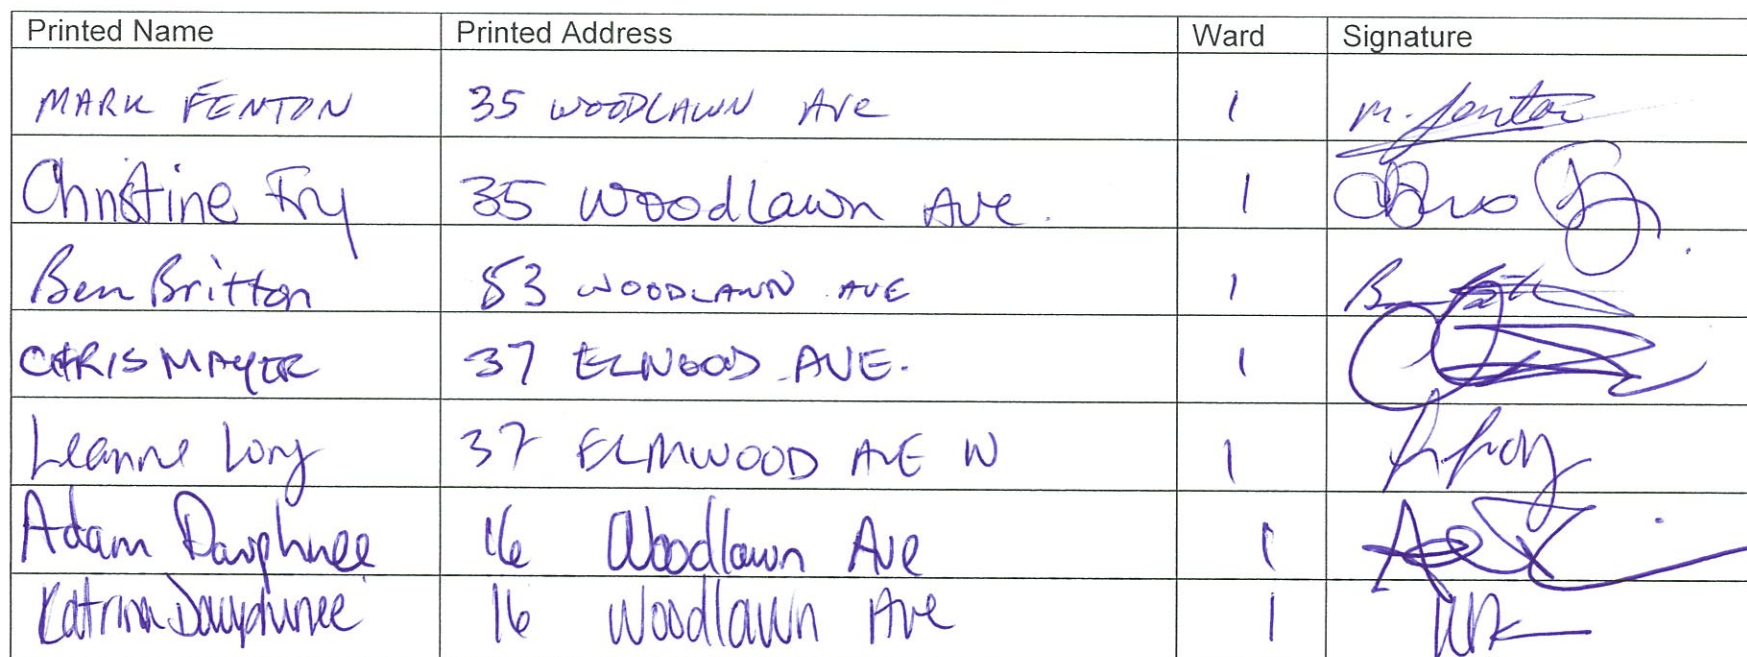 Printed Name Printed Address Ward Signature
MARK FENTON 35 WOODLAWN AVE 1 M. Fenton
Christine Fry 35 Woodlawn Ave. 1
Ben Britton 53 WOODLAWN AVE 1
CHRIS MAYER 37 ELMWOOD AVE. 1
Leanne Long 37 ELMWOOD AVE W 1
Adam Dauphinee 16 Woodlawn Ave 1
Katrina Dauphinee 16 Woodlawn Ave 1